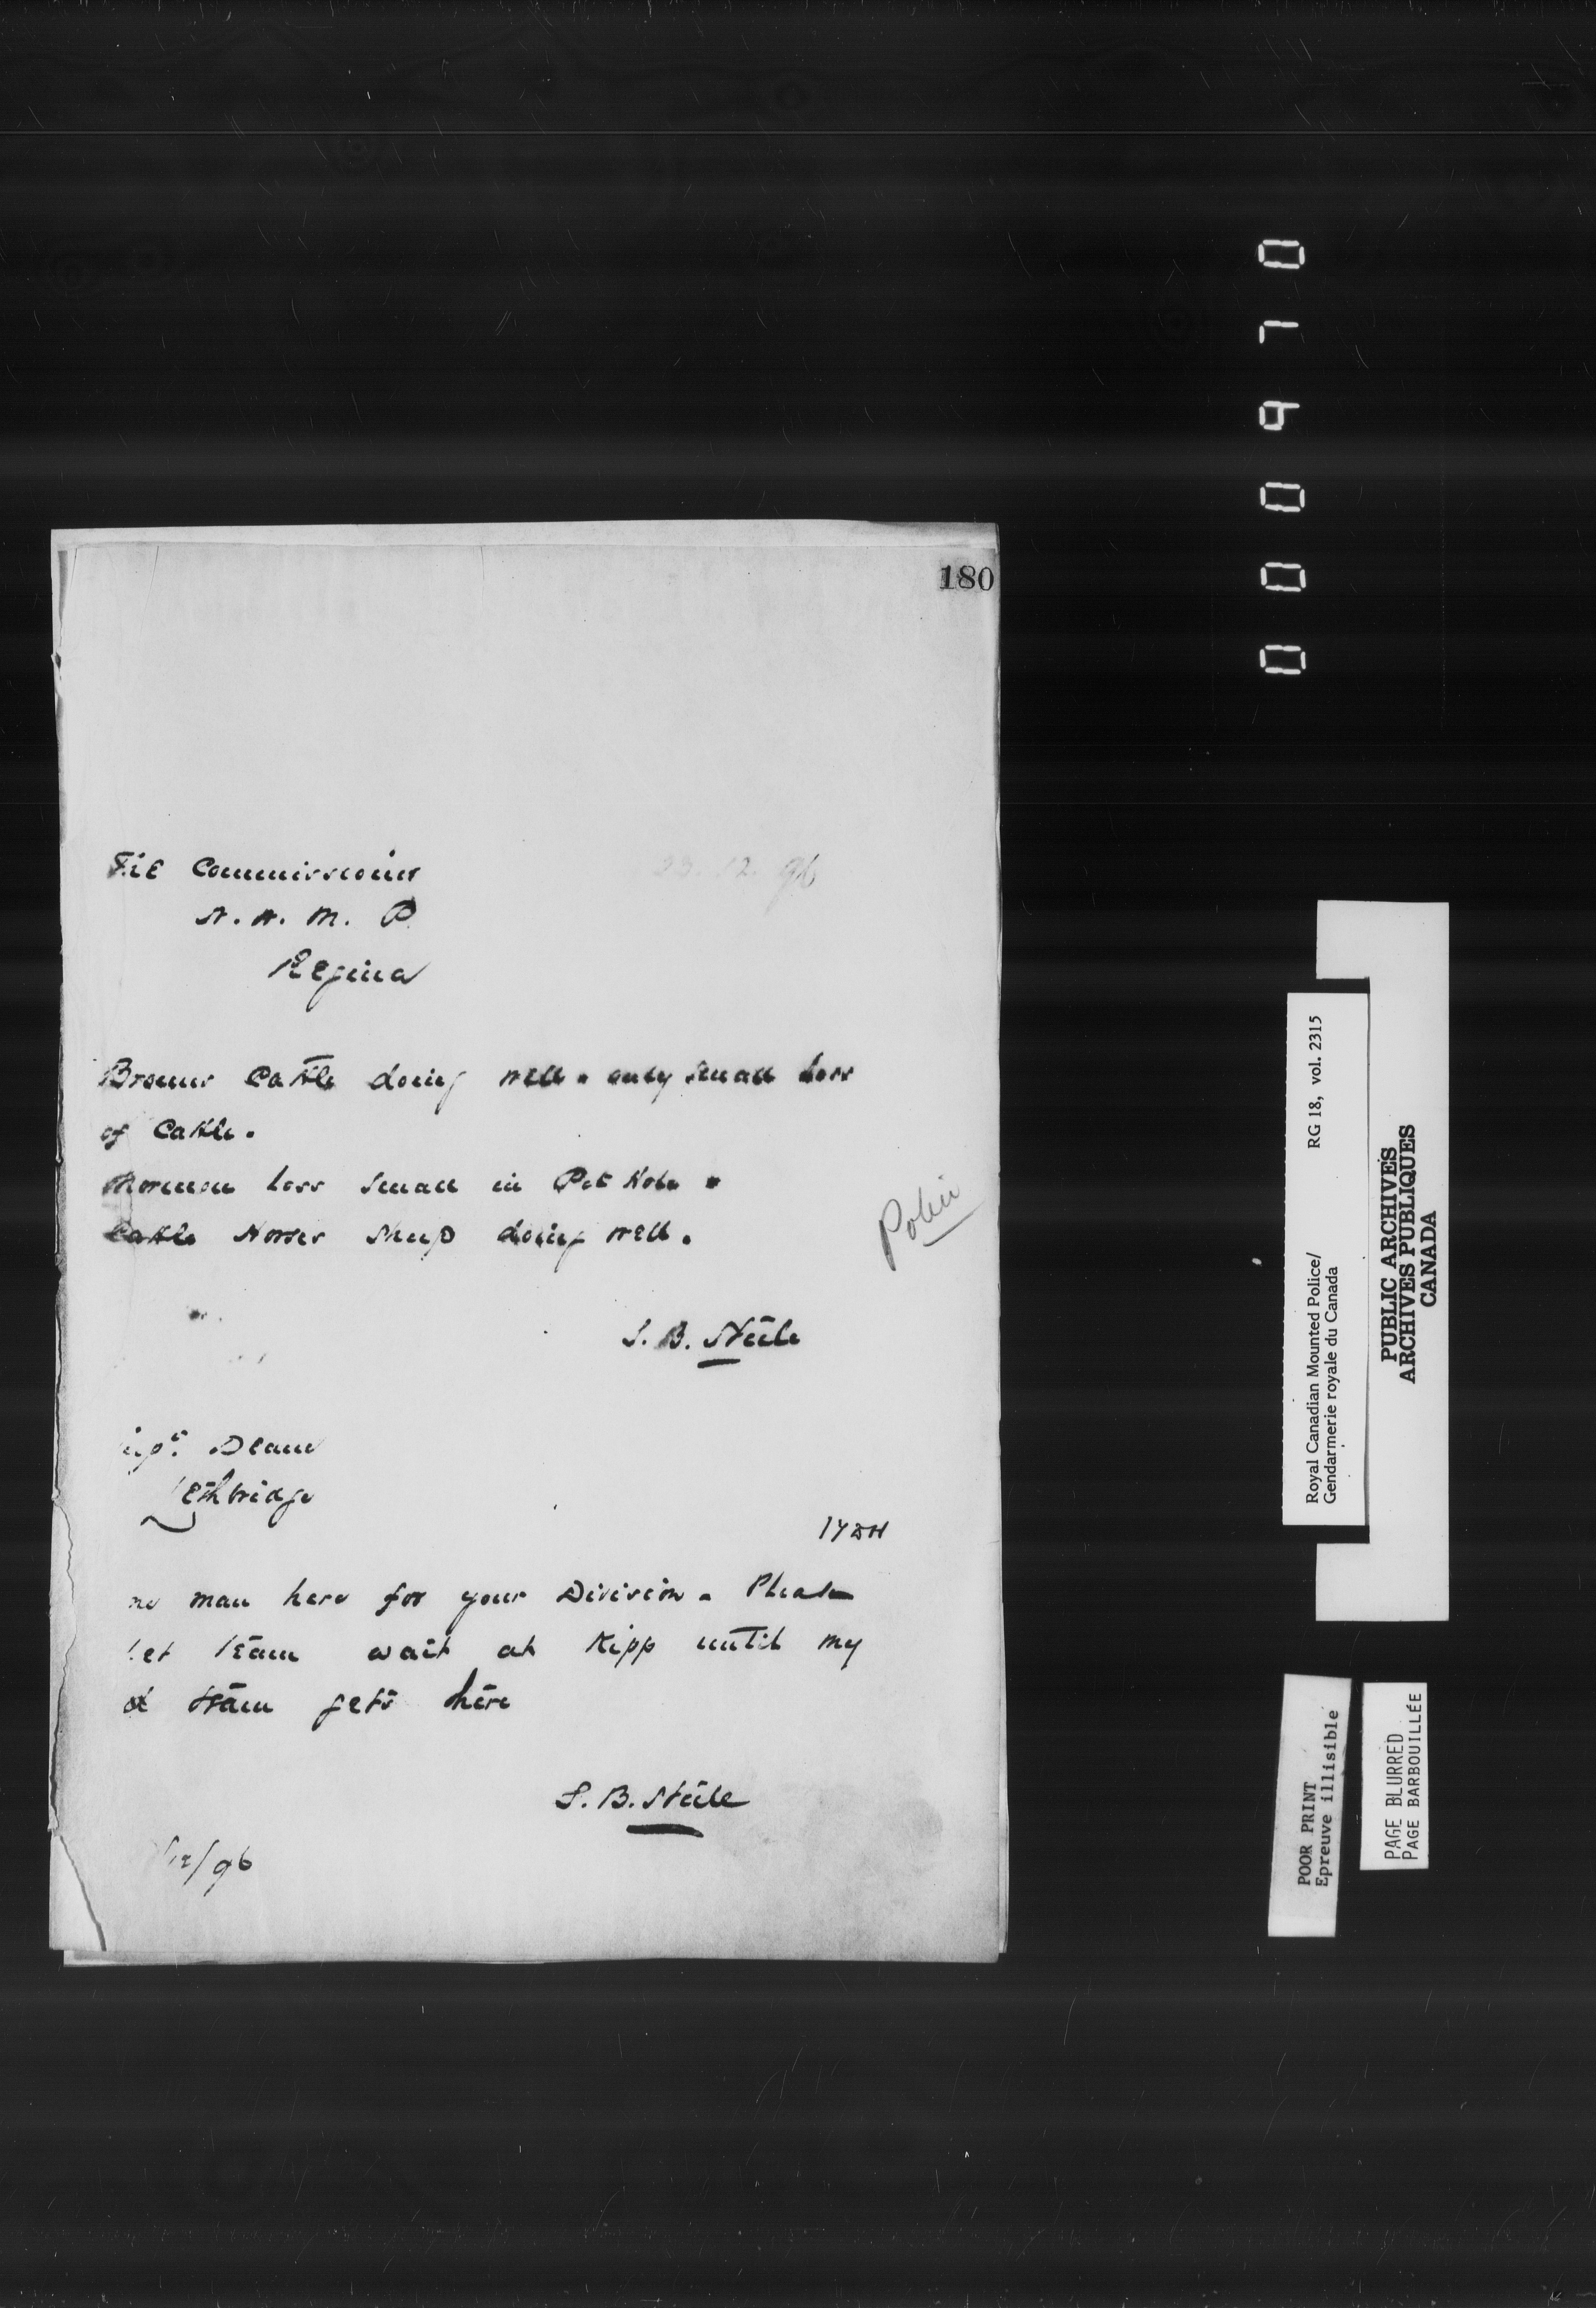 180
The Commissioner
23.12.96
N. W. M. P.
Regina
Browns Cattle doing well. only small loss
of Cattle.
Mormon loss small in Pot Hole.
Cattle Horses Sheep doing well.
S. B. Steele
Supt. Deane
Lethbridge
no man here for your Division. Please
let team wait at Kipp until my
team gets here
S. B. Steele
/12/96
000970
Royal Canadian Mounted Police/ RG 18, vol. 2315
Gendarmerie royale du Canada
PUBLIC ARCHIVES
ARCHIVES PUBLIQUES
CANADA
POOR PRINT
Epreuve illisible
PAGE BLURRED
PAGE BARBOUILLÉE